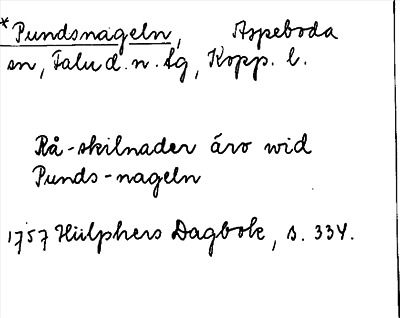 *Pundsnageln, Aspeboda
sn, Falu d. n. tg, Kopp. l.
Rå-skilnader äro wid
Punds-nageln
1757 Hülphers Dagbok, s. 334.